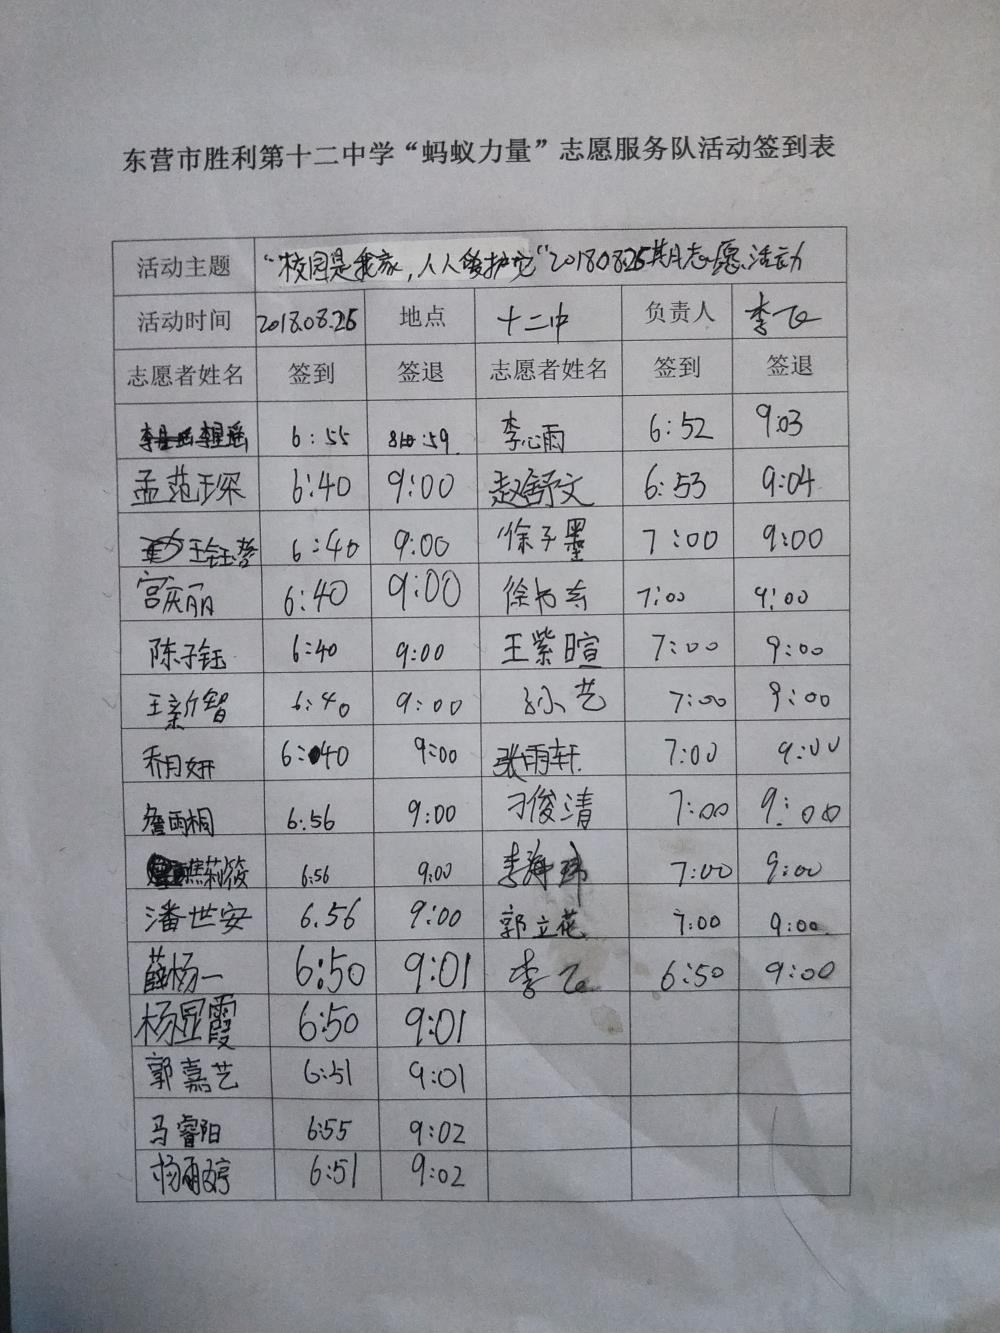 东营市胜利第十二中学“蚂蚁力量”志愿服务队活动签到表
活动主题 “校园是我家，人人爱护它”20180825期志愿活动
活动时间 2018.08.25 地点 十二中 负责人 李飞
志愿者姓名 签到 签退 志愿者姓名 签到 签退
6:55 :59 李心雨 6:52 9:03
孟范琛 6:40 9:00 赵舒文 6:53 9:04
6:40 9:00 徐子墨 7:00 9:00
宫庆丽 6:40 9:00 7:00 9:00
陈子钰 6:40 9:00 王紫暄 7:00 9:00
王新智 6:40 9:00 孙艺 7:00 9:00
乔月妍 6:40 9:00 张雨轩 7:00 9:00
詹雨桐 6:56 9:00 刁俊清 7:00 9:00
焦莉筱 6:56 9:00 李海玮 7:00 9:00
潘世安 6.56 9:00 郭立花 7:00 9:00
薛杨一 6:50 9:01 李飞 6:50 9:00
杨显霞 6:50 9:01
郭嘉艺 6:51 9:01
马睿阳 6:55 9:02
杨雨婷 6:51 9:02